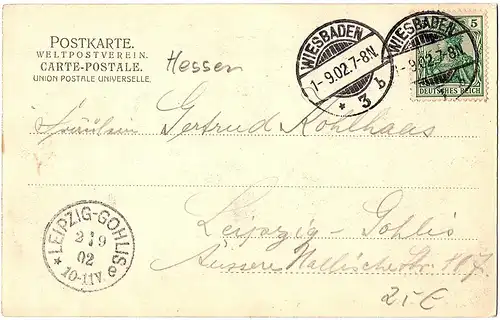 POSTKARTE.
WELTPOSTVEREIN.
CARTE-POSTALE.
UNION POSTALE UNIVERSELLE.
Hessen
WIESBADEN
1-9.02.7-8N.
* 3 b
WIESBADEN
1-9.02.7-8N.
5
DEUTSCHES REICH
Fräulein Gertrud Kohlhaas
Leipzig-Gohlis
Äussere Hallische Str. 107.
* LEIPZIG-GOHLIS e
2 9
02
10-11V.
25-€